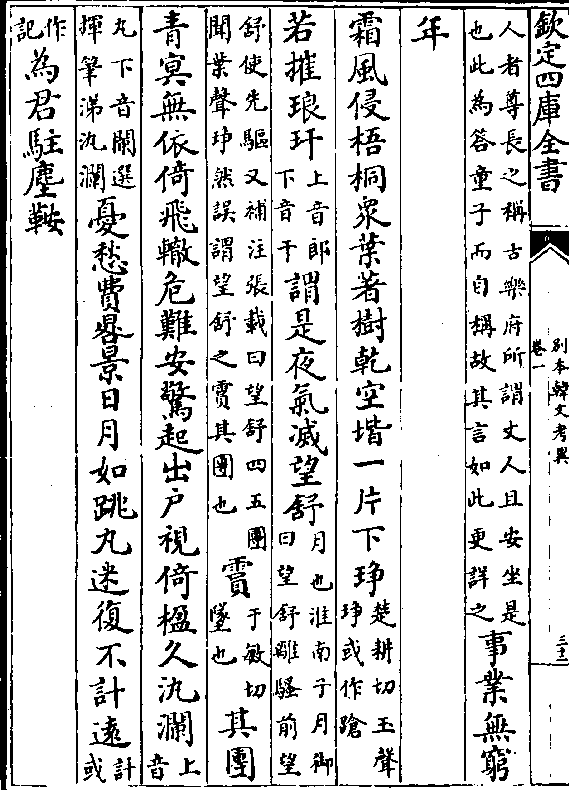 欽定四庫全書
別本韓文考異
卷一
人者尊長之稱古樂府所謂丈人且安坐是
也此為答童子而自稱故其言如此更詳之
事業無窮
年
霜風侵梧桐衆葉著樹乾空堦一片下琤
楚耕切玉聲
琤或作蹌
若摧琅玕
上音郎
下音干
謂是夜氣滅望舒
月也淮南子月御
曰望舒離騷前望
舒使先驅又補注張載曰望舒四五團
聞葉聲琤然誤謂望舒之霣其團也
霣
于敏切
墜也
其團
青冥無依倚飛轍危難安驚起出户視倚楹久汍瀾
上
音
丸下音闌選
揮筆涕汍瀾
憂愁費晷景日月如跳丸迷復不計遠
計
或
作
記
為君駐塵鞍